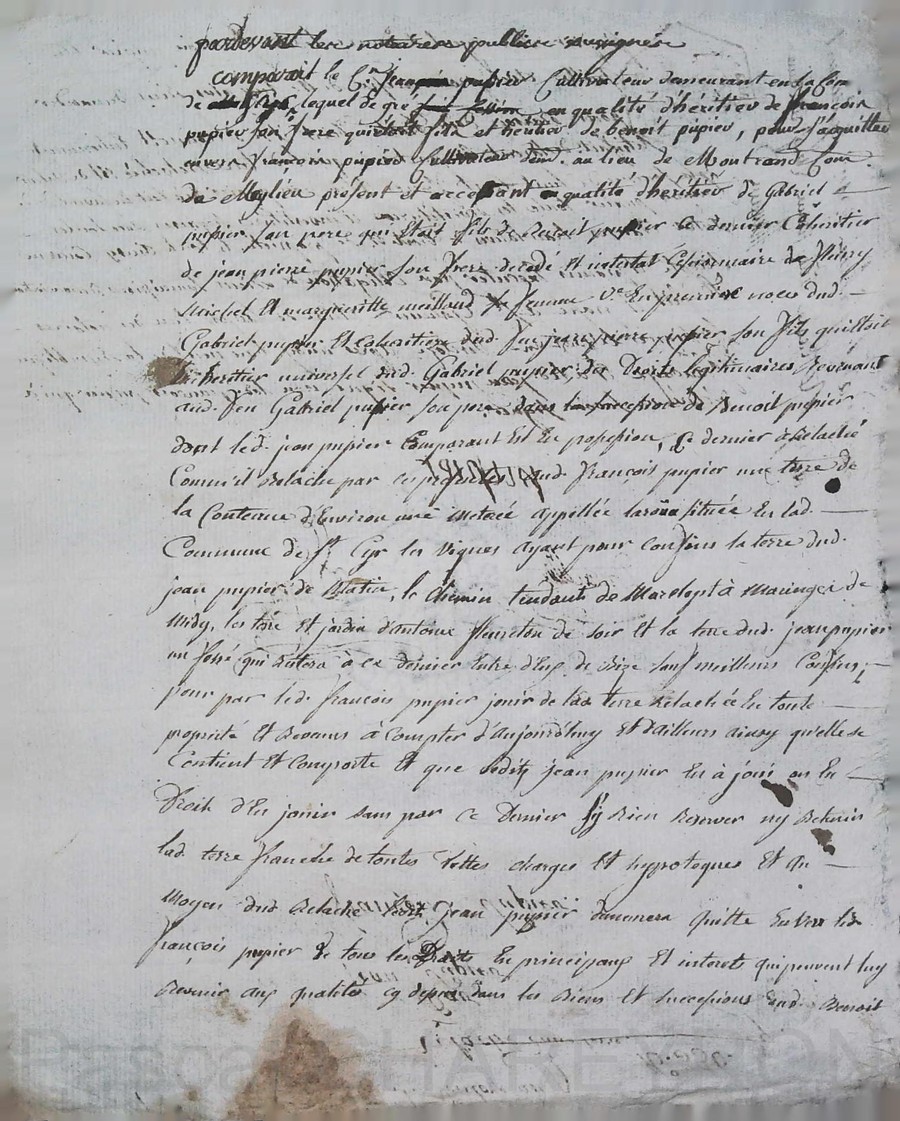 pardevant les notaires publics soussignés
comparait le Cn Jean pupier Cultivateur demeurant en la Cne
de St Cyr, lequel de gré en qualité d'héritier de françois
pupier son frere qui était fils et héritier de benoit pupier, pour s'acquitter
envers françois pupier Cultivateur demt. au lieu de Montrand Com
de Meylieu present et acceptant en qualité d'héritier de Gabriel
pupier son pere qui était fils de Benoit pupier Ce dernier Coheritier
de jean pierre pupier son frere decedé et intestat Cessionnaire de fleury
Michel Et marguerite meilland sa femme Ve En premiere noces dud.
Gabriel pupier Et Coheritiere dud. feu jean pierre pupier son fils qui Etoit
heritier universel dud. Gabriel pupier des Droits legitimaires Revenant
aud. feu Gabriel pupier son pere dans la succession de Benoit pupier
dont led. jean pupier Comparant Est En possession, Ce dernier a Relaché
Comme il Relache par ces presentes aud. françois pupier une terre de
la Contenue d'Environ une Meterée appellée laroüe située En lad.
Commune de St Cyr les vignes ayant pour Confins la terre dud.
jean pupier de Matin, le Chemin tendant de Marclopt à Maringes de
Midy, les terre Et jardin d'antoine fleureton de soir Et la terre dud. jean pupier
un fossé qui Restera à ce dernier Entre d'Eux de Bize sauf meilleurs Confins,
pour par led. françois pupier jouir de lad. terre Relachée En toute
propriété Et Revenus à Compter d'aujourd'huy Et d'ailleurs ainsy qu'elle se
Contient Et Comporte Et que ledit jean pupier En a joui ou Eu
Droit d'En jouir sans par Ce Dernier s'y Rien Reserver ny Retenir
lad. terre franche de toutes dettes charges Et hypoteques Et au
Moyen dud Relaché ledit jean pupier demeurera quitte Envers led.
françois pupier de tous les Droits En principaux Et interets qui peuvent luy
Revenir aux qualités cy dessus dans les Biens Et successions dud. Benoit